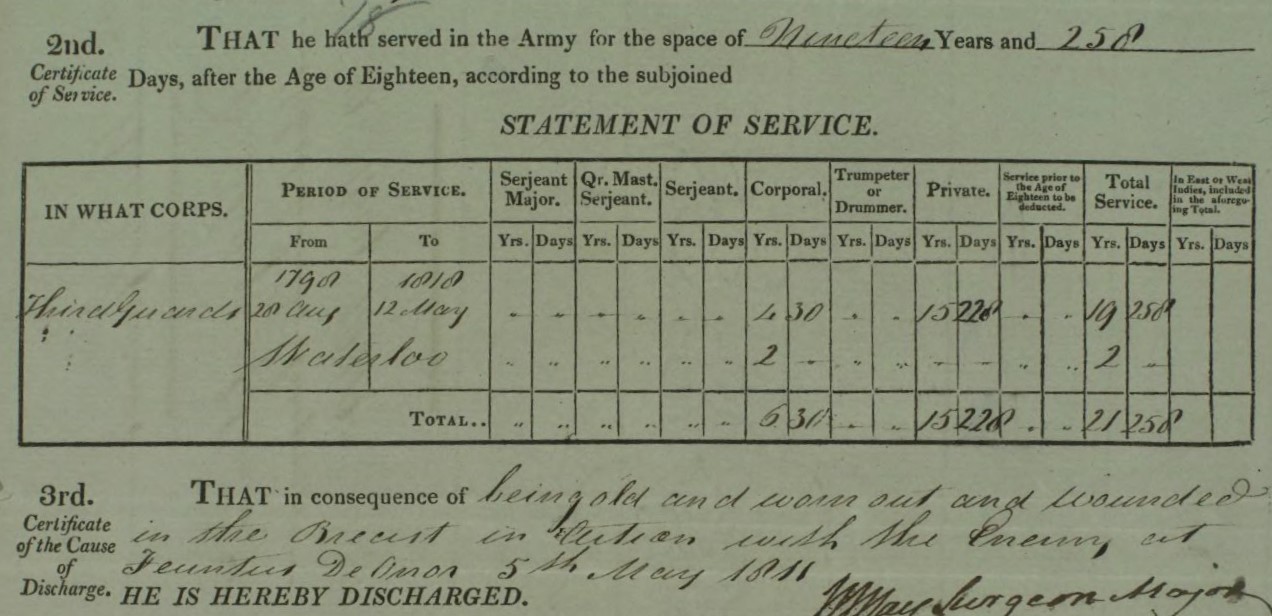 18
2nd. THAT he hath served in the Army for the space of Nineteen Years and 258
Certificate of Service. Days, after the Age of Eighteen, according to the subjoined
STATEMENT OF SERVICE.
IN WHAT CORPS. PERIOD OF SERVICE. Serjeant Major. Qr. Mast. Serjeant. Serjeant. Corporal. Trumpeter or Drummer. Private. Service prior to the Age of Eighteen to be deducted. Total Service. In East or West Indies, included in the aforegoing Total.
From To Yrs. Days Yrs. Days Yrs. Days Yrs. Days Yrs. Days Yrs. Days Yrs. Days Yrs. Days Yrs. Days
1798 1818
Third Guards 28 Aug 12 May " " " " " " 4 30 " " 15 228 " " 19 258
Waterloo " " " " " " 2 " " " " " " " 2 "
TOTAL.. " " " " " " 6 30 " " 15 228 " " 21 258
3rd. THAT in consequence of being old and worn out and wounded
Certificate of the Cause of Discharge. in the Breast in Action with the Enemy at
Feuntus De Onor 5th May 1811
HE IS HEREBY DISCHARGED.
Surgeon Major